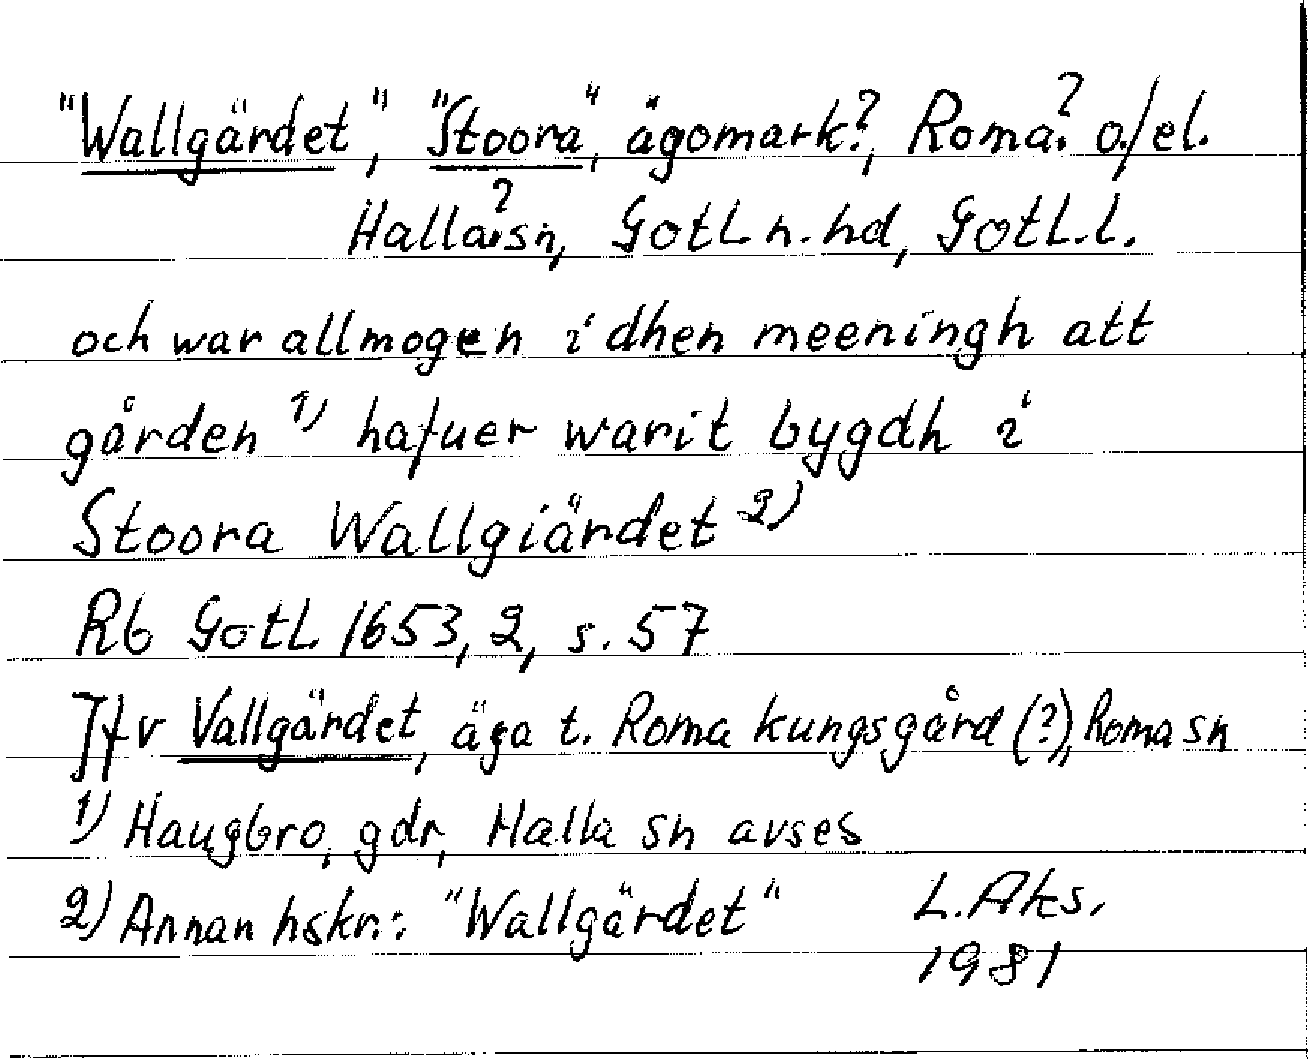 "Wallgärdet", "Stoora", ägomark?, Roma? o./el.
Halla? sn, Gotl. n. hd, Gotl. l.
och war allmogen i dhen meeningh att
gården 1) hafuer warit bygdh i
Stoora Wallgiärdet 2)
Rb Gotl. 1653, 2, s. 57
Jfv Vallgärdet, äga t. Roma kungsgård (?), Roma sn
1) Haugbro, gdr, Halla sn avses
2) Annan hskr.: "Wallgärdet"
L. Aks.
1981